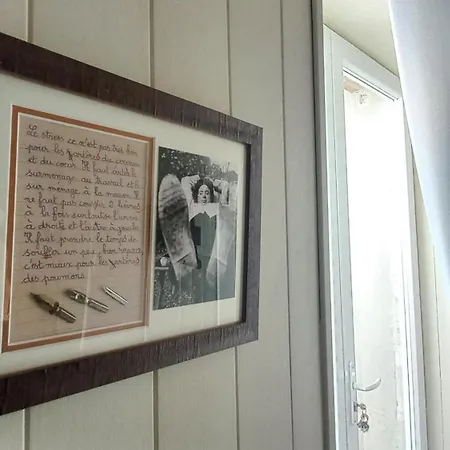 Le stress ce n'est pas très bon
pour les fartères du cerveau
et du coeur. Il faut évité le
surmenage au travail et le
sur ménage à la maison. Il
ne faut pas courir 2 lièvres
à la fois surtout si l'un va
à droite et l'autre à gauche
Il faut prendre le temps de
souffla un peu, bien respirer,
c'est mieux pour les fartères
des poumons.